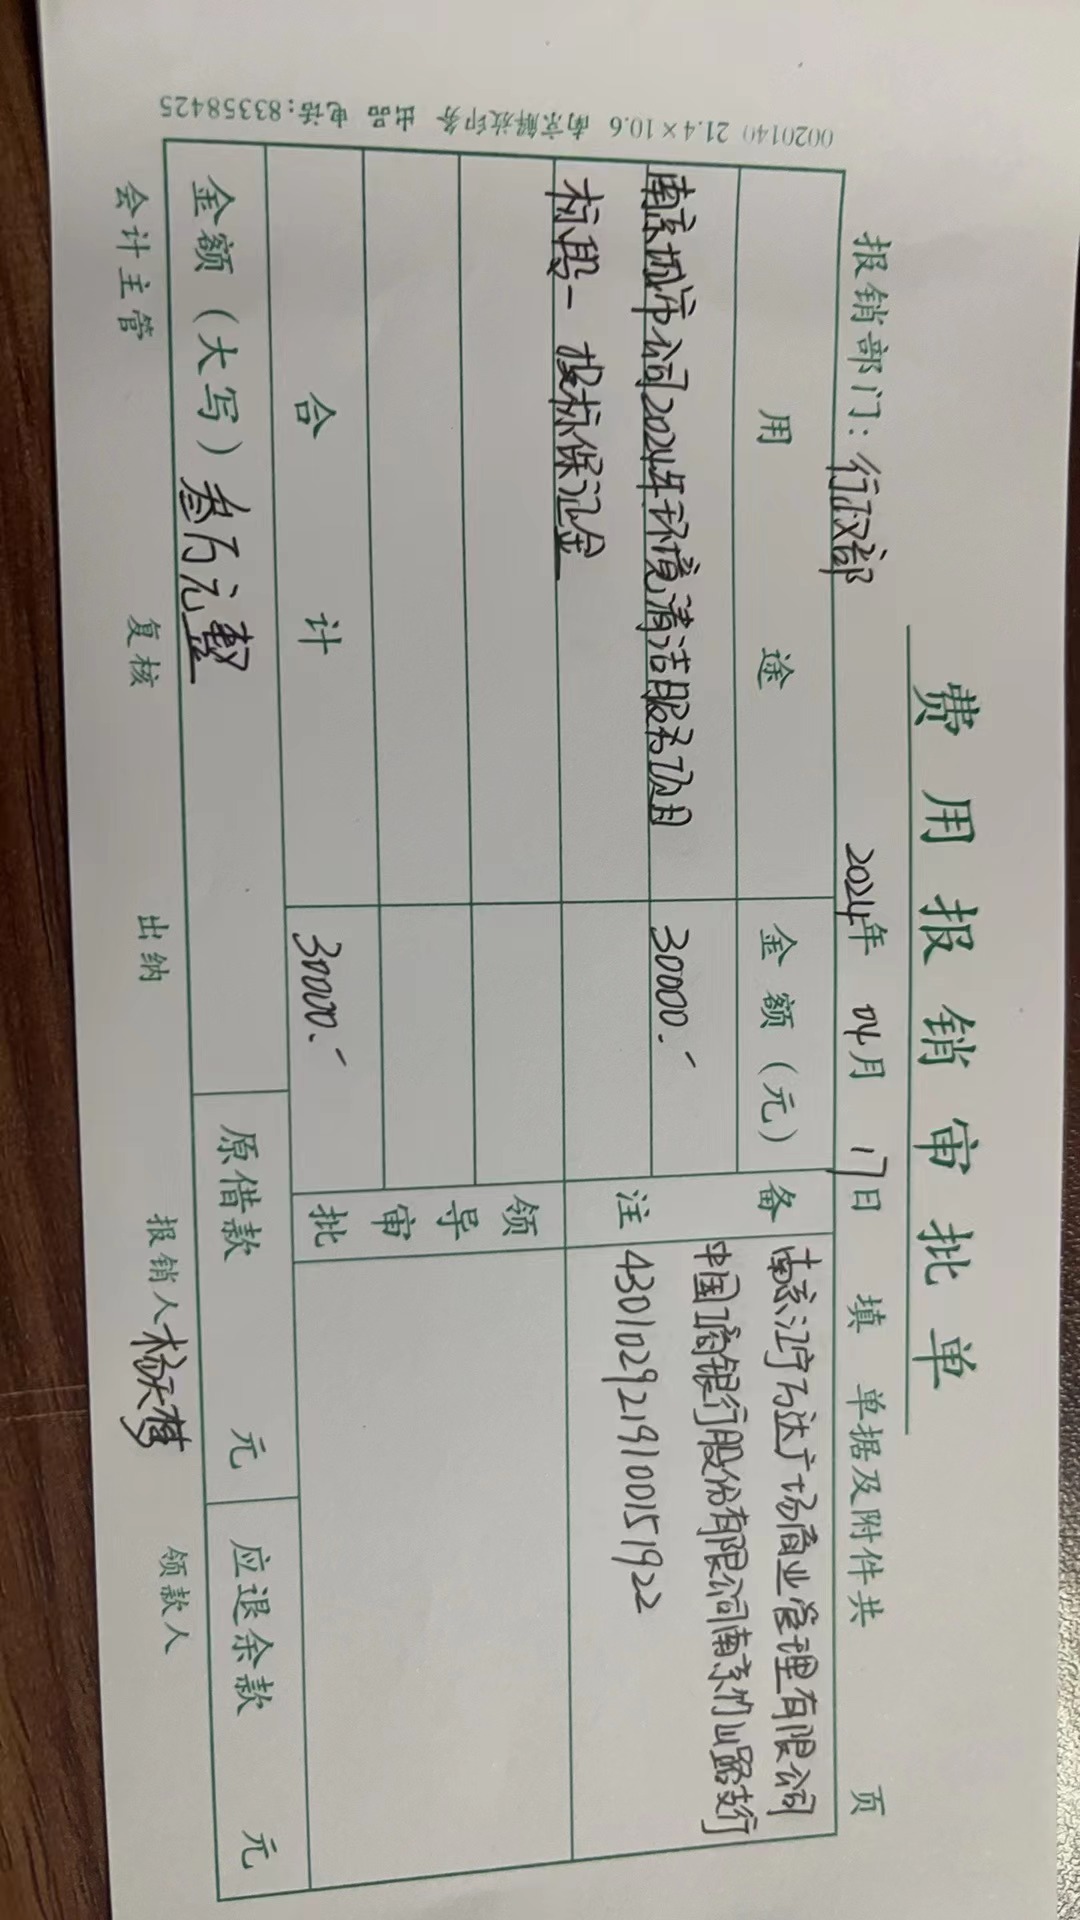 费用报销审批单
报销部门：行政部 2024年 04月 17日 填 单据及附件共 页
用途 金额（元） 备注
南京城市公司2024年环境清洁服务项目 30000.-
标段一 投标保证金
南京江宁万达广场商业管理有限公司
中国工商银行股份有限公司南京竹山路支行
4301029219100151922
领导审批
合计 30000.-
金额（大写）叁万元整 原借款 元 应退余款 元
会计主管 复核 出纳 报销人 杨天梦 领款人
0020140 21.4×10.6 南京解放印务 出品 电话：83358425